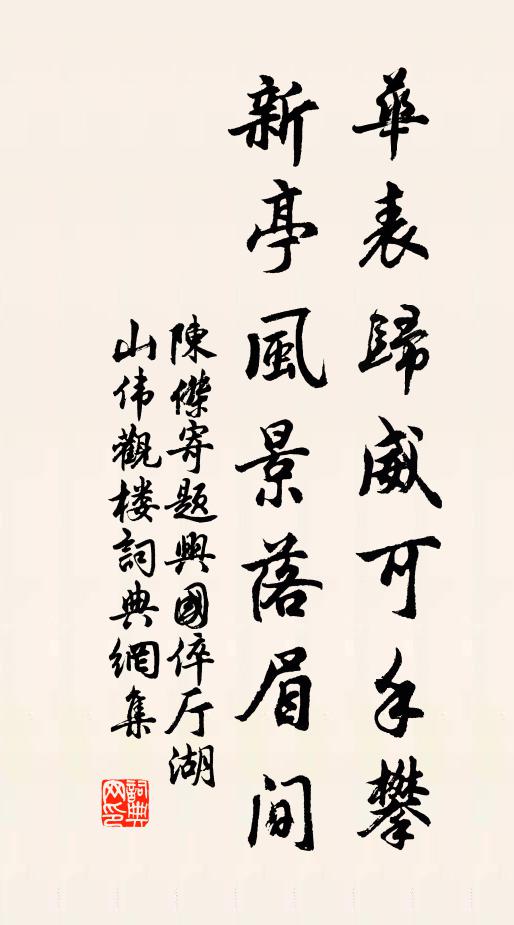 華表歸威可手攀
新亭風景落眉間
陳傑寄題興國倅厅湖
山伟觀楼詞典網集
詞典网印